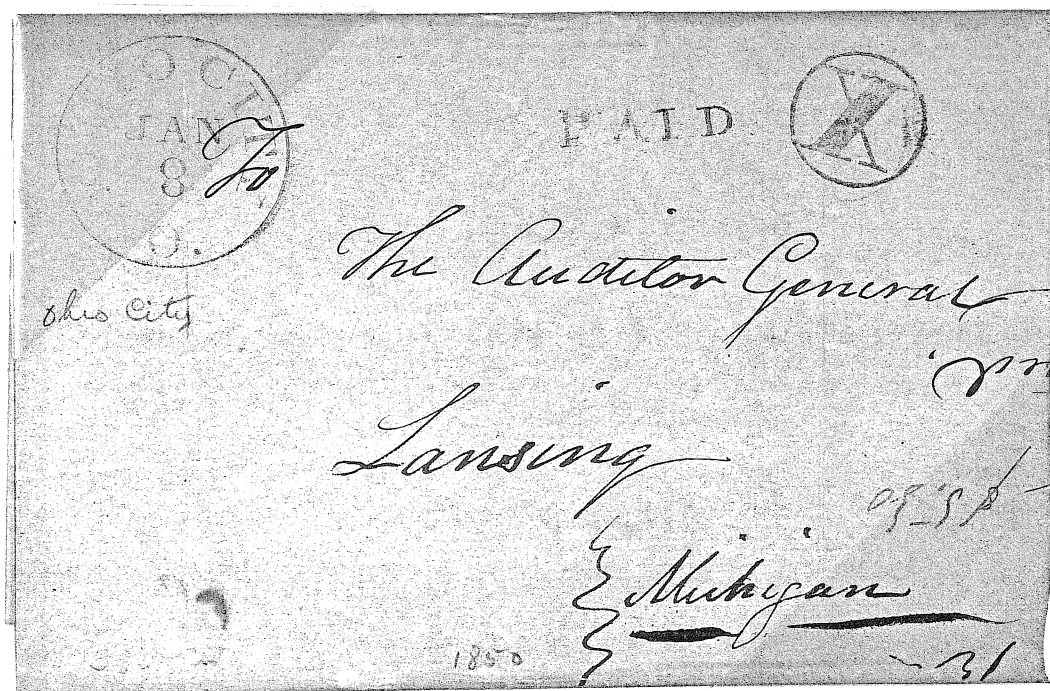 O CITY
JAN
8
O.
PAID
X
To
The Auditor General
Ohio City
Lansing
Michigan
1850